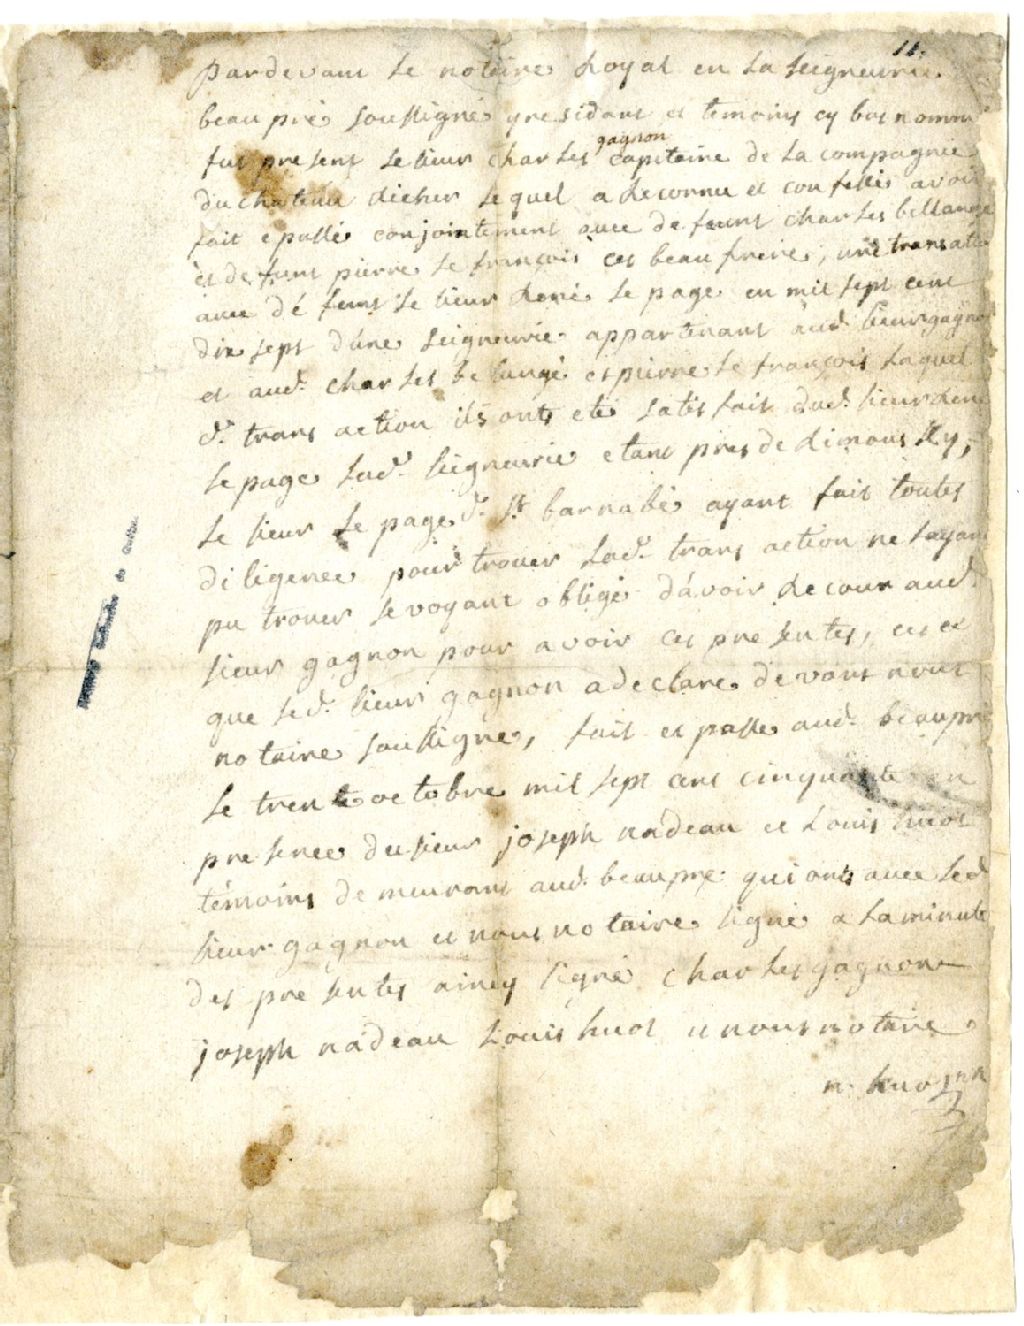 11.
pardevant le notaire Royal en la seigneurie
beaupré soussigné yresidant et temoins cy bas nommé
gagnon
fut present le sieur charles capitaine de la compagnie
du chateau Richer lequel a Reconnu et confessé avoir
fait e passé conjointement avec defeunt charles bellange
et defunt pierre le françois ces beaufrere, une transatio
avec dé funt le sieur René le page en mil sept cent
dix sept d'une seigneurie appartenant aud. sieur gagnon
et aud. charles belangé et pierre le françois laquel
d. trans action ils onts eté satis fait dud. sieur Rene
le page lad. seigneurie etant pres de Rimousky,
le sieur le page d. st barnabé ayant fait toutes
diligence pour trouer lad. trans action ne layant
pu trouer se voyant obligé d'avoir Recour aud.
sieur gagnon pour avoir ces presentes, ces ce
que led. sieur gagnon a declare devant nous
notaire soussigne, fait et passe aud. beaupré
le trente octobre mil sept cent cinquante en
presence du sieur joseph nadeau et Louis huot
témoins demeurant aud. beaupre qui onts avec led
sieur gagnon et nous notaire signé a la minute
des presentes ainsy signé charles gagnon
joseph nadeau Louis huot et nous notaire
n. huot